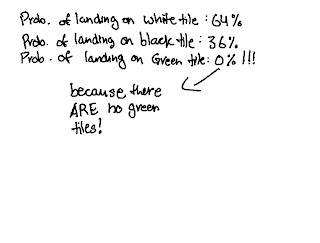 Prob. of landing on white tile : 64%
Prob. of landing on black tile : 36%
Prob. of landing on Green tile : 0% !!!
because there
ARE no green
tiles!